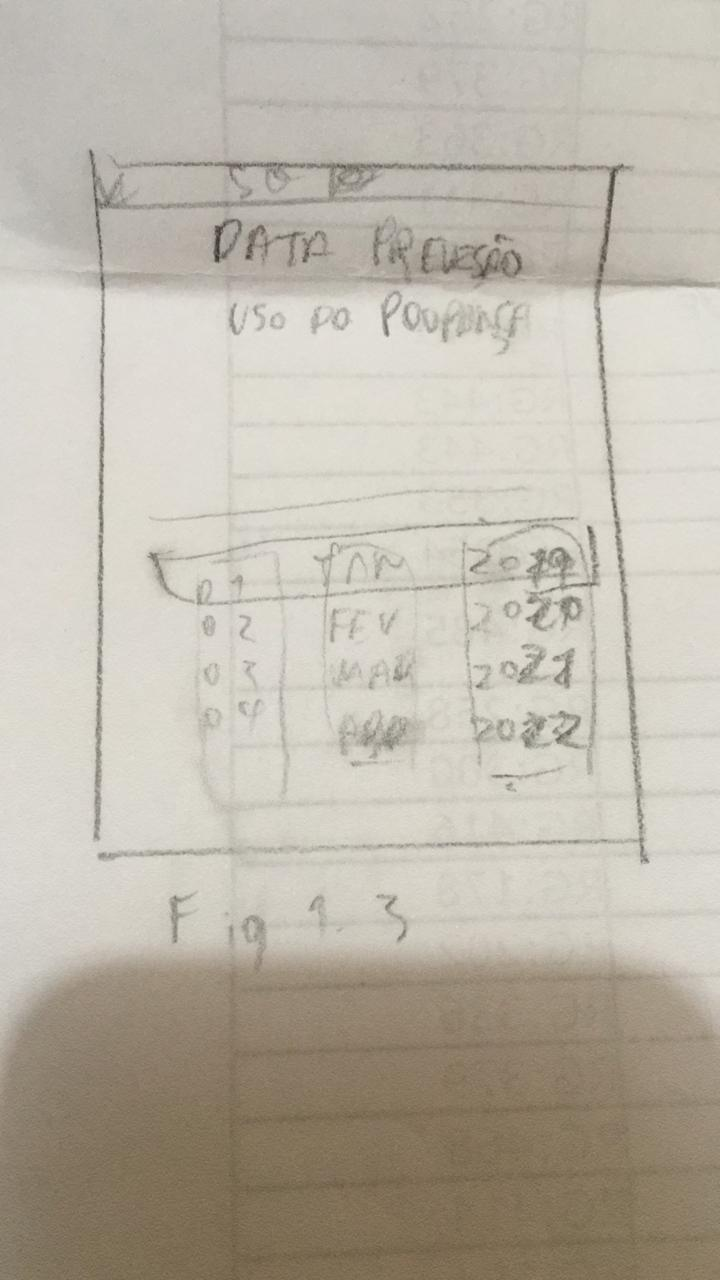 5G
DATA PREVESÃO
USO DO POUPANÇA
01 JAN 2019
02 FEV 2020
03 MAR 2021
04 ABR 2022
Fig 1.3